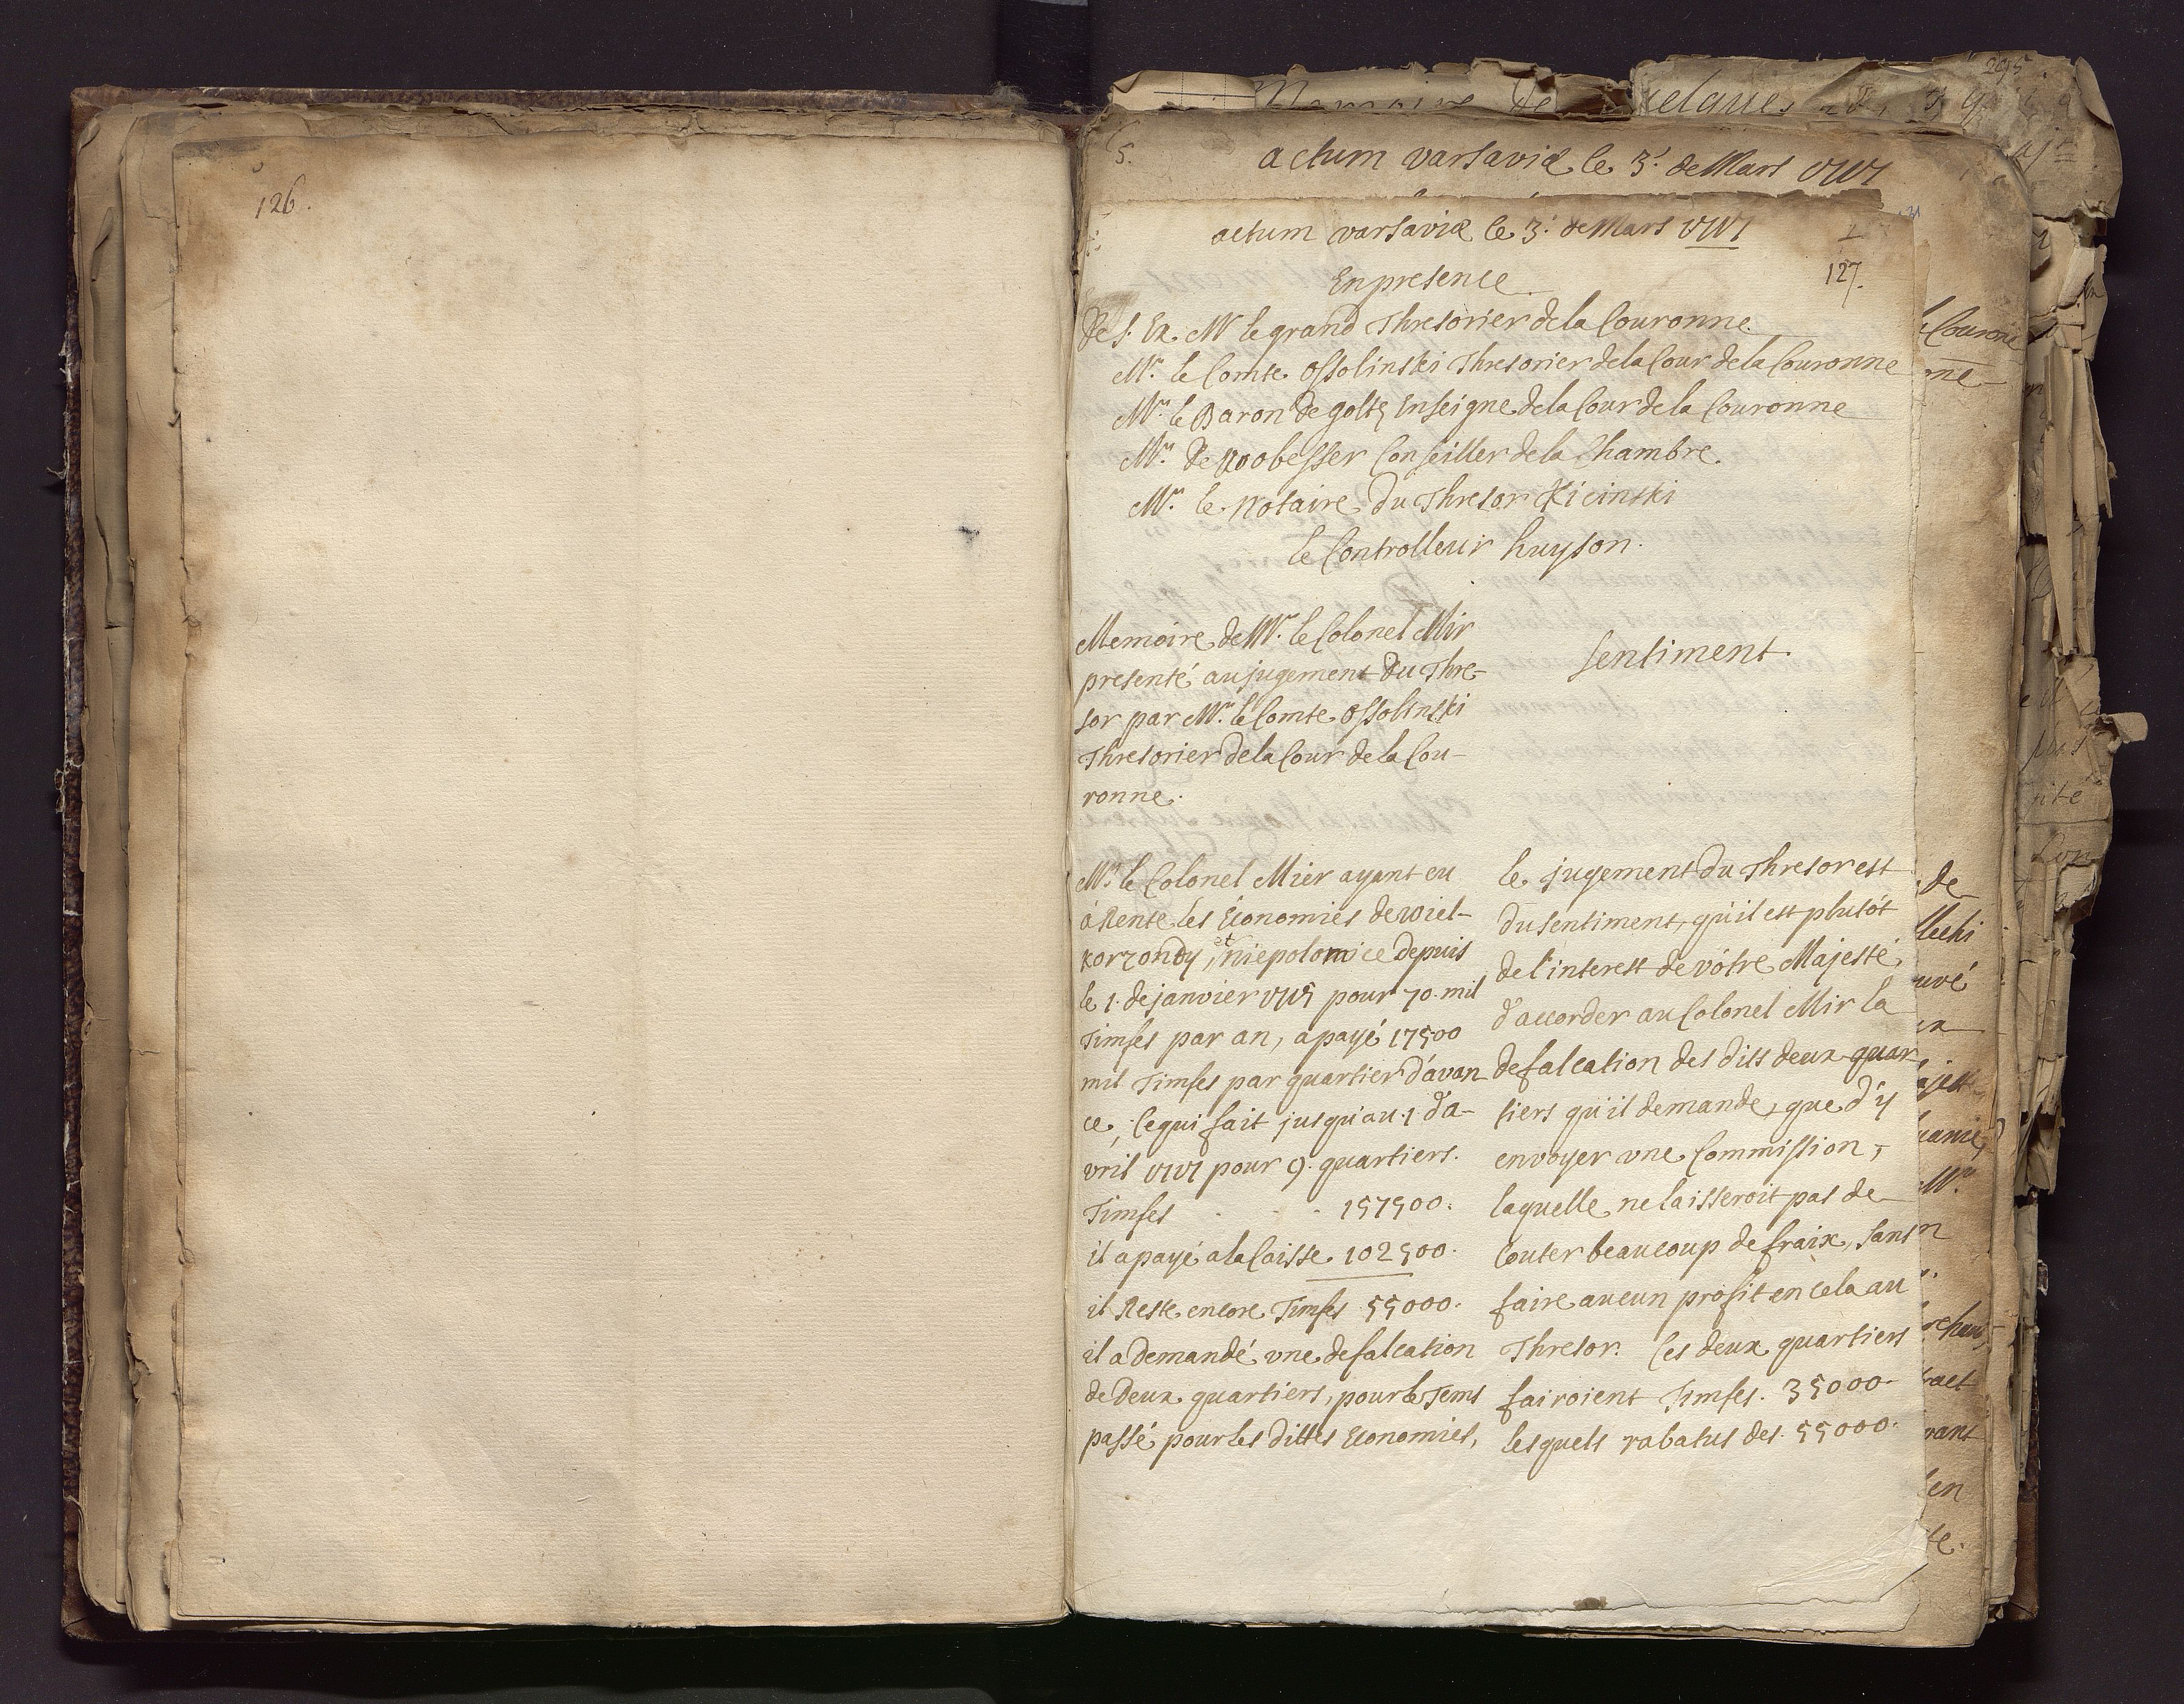 126.
actum varsaviæ le 3. de Mars 1717
actum varsaviæ le 3. de Mars 1717
127.
En presence
de S. Ex. Mr le grand Thresorier de la Couronne.
Mr. le Comte Ossolinski Thresorier de la Cour de la Couronne
Mr. le Baron de goltz Enseigne de la Cour de la Couronne
Mr. de Conseiller de la Chambre.
Mr. le Notaire du Thresor Kicinski
le Controlleur huyson.
Memoire de Mr. le Colonel Mir
presenté au jugement du Thre-
sor par Mr. le Comte Ossolinski
Thresorier de la Cour de la Cou-
ronne.
Sentiment.
Mr. le Colonel Mier ayant eu
à Rente les Economies de wiel-
korzondy, et niepolomice depuis
le 1. de janvier 1715 pour 70. mil
Timfes par an, a payé 17500
mil Timfes par quartier d'avan
ce, Ce qui fait jusqu'au 1. d'a-
vril 1717 pour 9. quartiers.
Timfes . . . 157500.
il a payé a la Caisse 102500.
il Reste encore Timfes 55000.
il a demandé une defalcation
de deux quartiers, pour le Tems
passé pour les dittes Economies,
le jugement du Thresor est
du sentiment, qu'il est plutôt
de l'interest de vôtre Majesté,
d'accorder au Colonel Mir la
defalcation des dits deux quar
tiers qu'il demande, que d'y
envoyer une Commission,
laquelle ne laisseroit pas de
Couter beaucoup de fraix, sans
faire aucun profit en cela au
Thresor. Ces deux quartiers
fairoient Timfes. 35000.
lesquels rabatus des 55000.